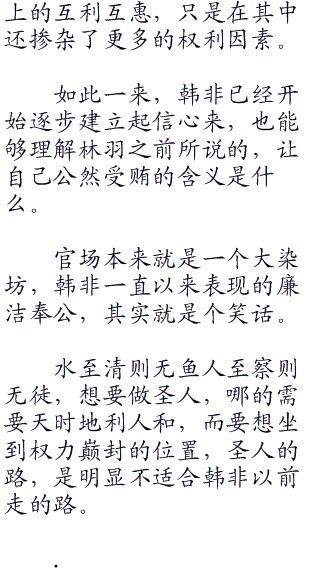 上的互利互惠，只是在其中
还掺杂了更多的权利因素。
如此一来，韩非已经开
始逐步建立起信心来，也能
够理解林羽之前所说的，让
自己公然受贿的含义是什
么。
官场本来就是一个大染
坊，韩非一直以来表现的廉
洁奉公，其实就是个笑话。
水至清则无鱼人至察则
无徒，想要做圣人，哪的需
要天时地利人和，而要想坐
到权力巅封的位置，圣人的
路，是明显不适合韩非以前
走的路。
.